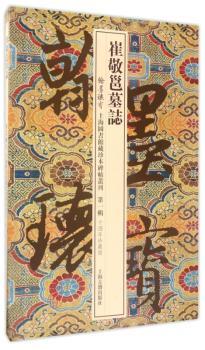 崔敬邕墓誌
翰墨瓌寶 上海圖書館藏珍本碑帖叢刊 第一輯
上海古籍出版社
翰墨
瓌寶